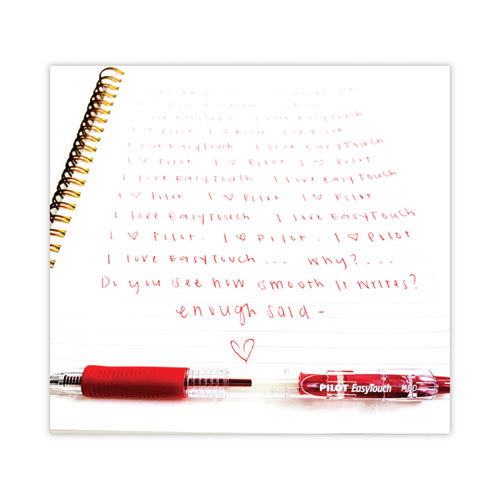 I love EasyTouch
I ♥ Pilot I ♥ Pilot I ♥ Pilot
I love EasyTouch I love EasyTouch
I ♥ Pilot I ♥ Pilot I ♥ Pilot
I love EasyTouch. I love EasyTouch
I ♥ Pilot I ♥ Pilot I ♥ Pilot
I love EasyTouch. I love EasyTouch
I ♥ Pilot. I ♥ Pilot. I ♥ Pilot
I love EasyTouch ... Why?...
Do you see how smooth it writes?
enough said -
PILOT EasyTouch MED